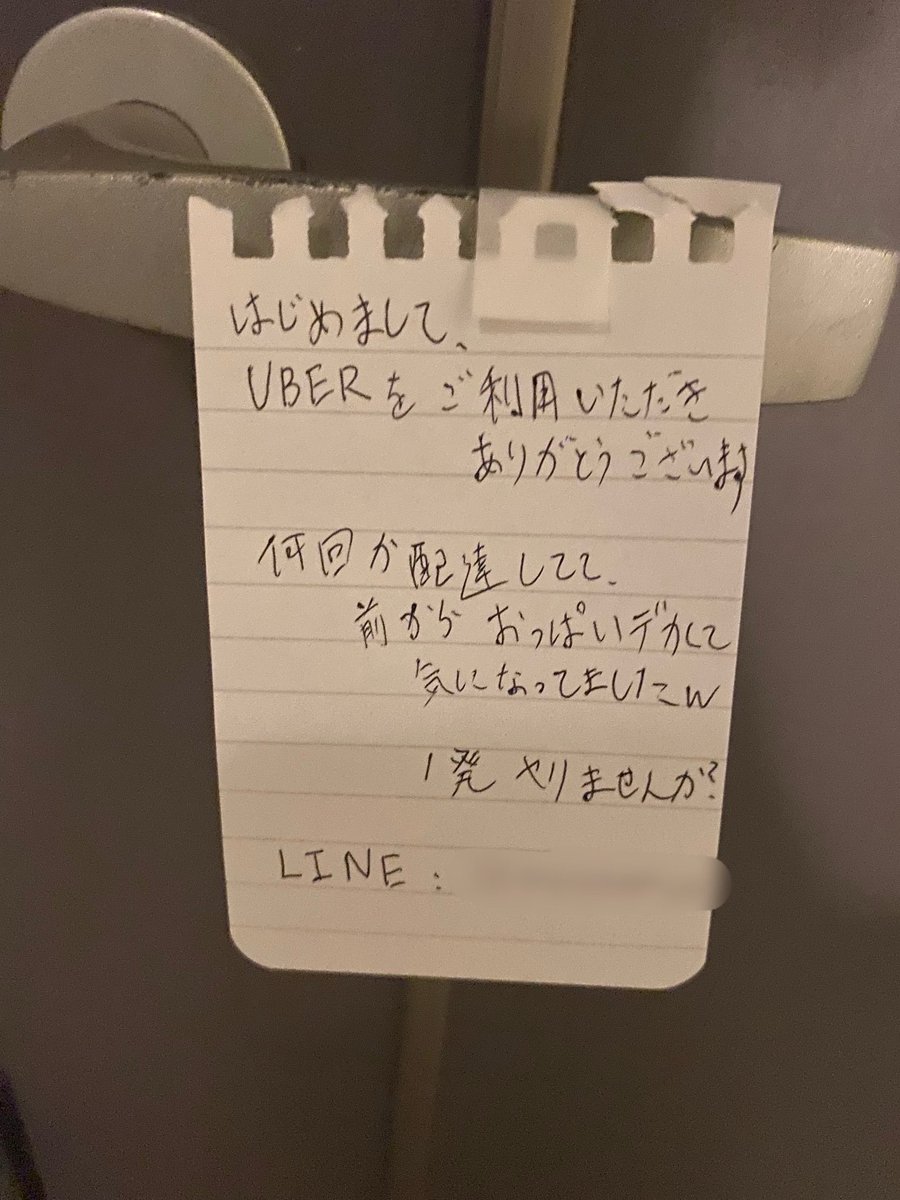 はじめまして、
UBERをご利用いただき
ありがとうございます
何回か配達してて、
前からおっぱいデカくて
気になってましたw
1発ヤりませんか?
LINE: